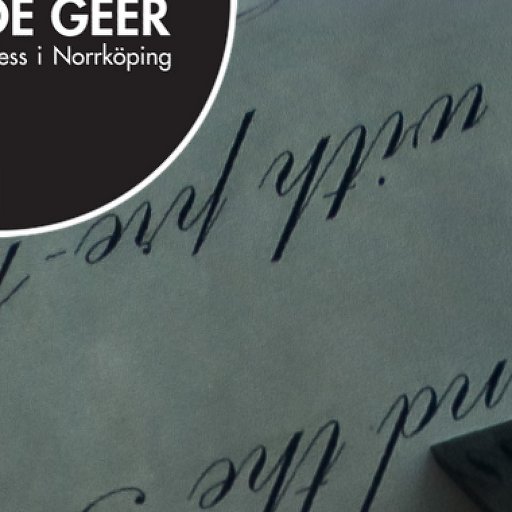 DE GEER
ess i Norrköping
with pre-
nd the